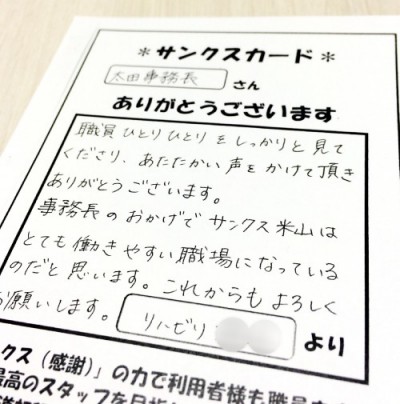 ＊サンクスカード＊
太田事務長 さん
ありがとうございます
職員ひとりひとりをしっかりと見て
くださり、あたたかい声をかけて頂き
ありがとうございます。
事務長のおかげでサンクス米山は
とても働きやすい職場になっている
のだと思います。これからもよろしく
お願いします。
リハビリ より
クス（感謝）」の力で利用者様も職員
最高のスタッフを目指